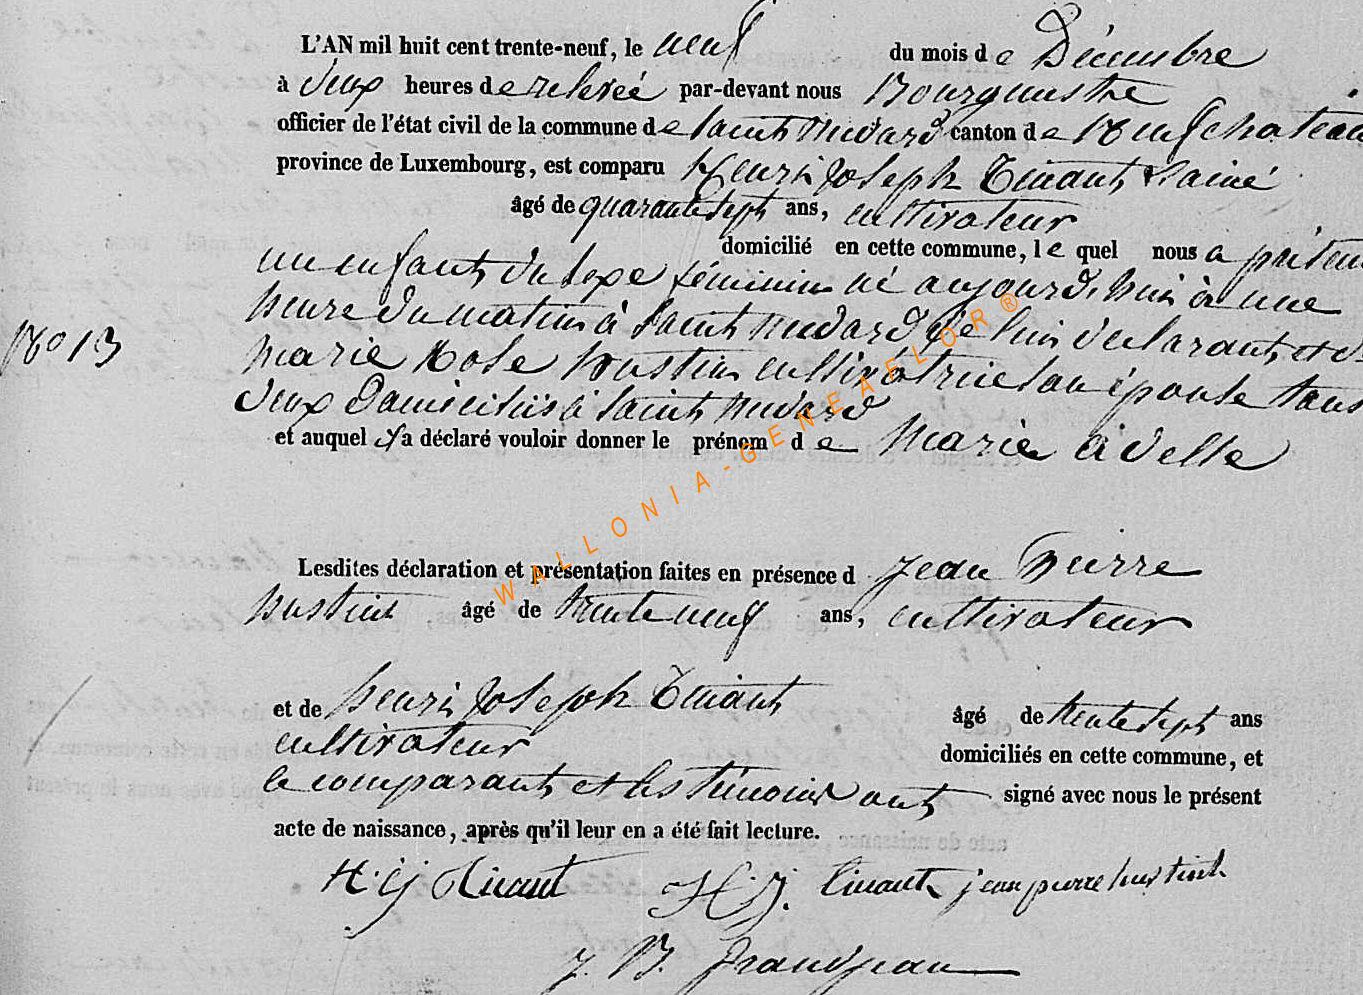 L'AN mil huit cent trente-neuf, le neuf du mois de Décembre
à deux heures de relevée par-devant nous Bourguestre
officier de l'état civil de la commune de Saint Medard canton de Neufchateau
province de Luxembourg, est comparu Henri Joseph Tinant L'ainé
âgé de quarante sept ans, cultivateur
domicilié en cette commune, le quel nous a présen
un enfant du sexe féminin né aujourd'hui à une
heure du matin à Saint Medard de lui declarant et d
N° 13
Marie Rose hustin cultivatrice son épouse tous
deux Domiciliés à Saint Medard
et auquel il a déclaré vouloir donner le prénom de Marie Adelle
Lesdites déclaration et présentation faites en présence d Jean Pierre
hustin âgé de trente neuf ans, cultivateur
et de henri Joseph Tinant âgé de trente sept ans
cultivateur domiciliés en cette commune, et
le comparant et les témoins ont signé avec nous le présent
acte de naissance, après qu'il leur en a été fait lecture.
H. j Tinant H. J. Tinant jean pierre hustin
J. B. Grandjean
WALLONIA-GENEAFLOR®